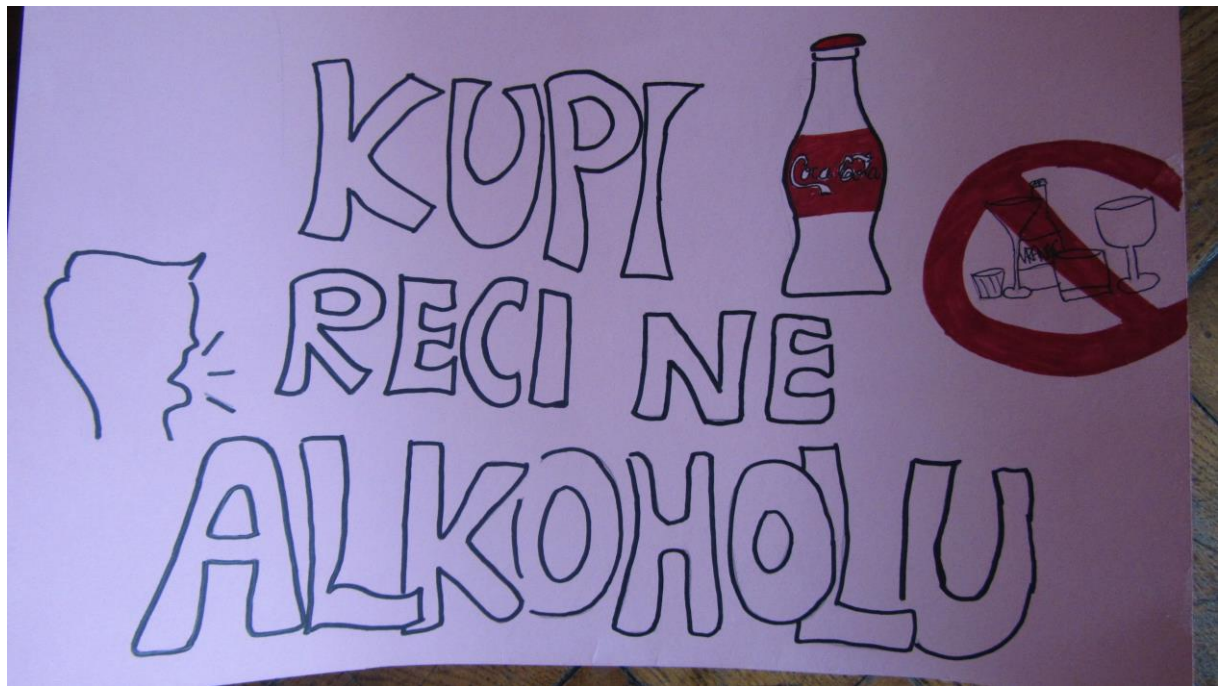 KUPI
Coca-Cola
RECI NE
ALKOHOLU